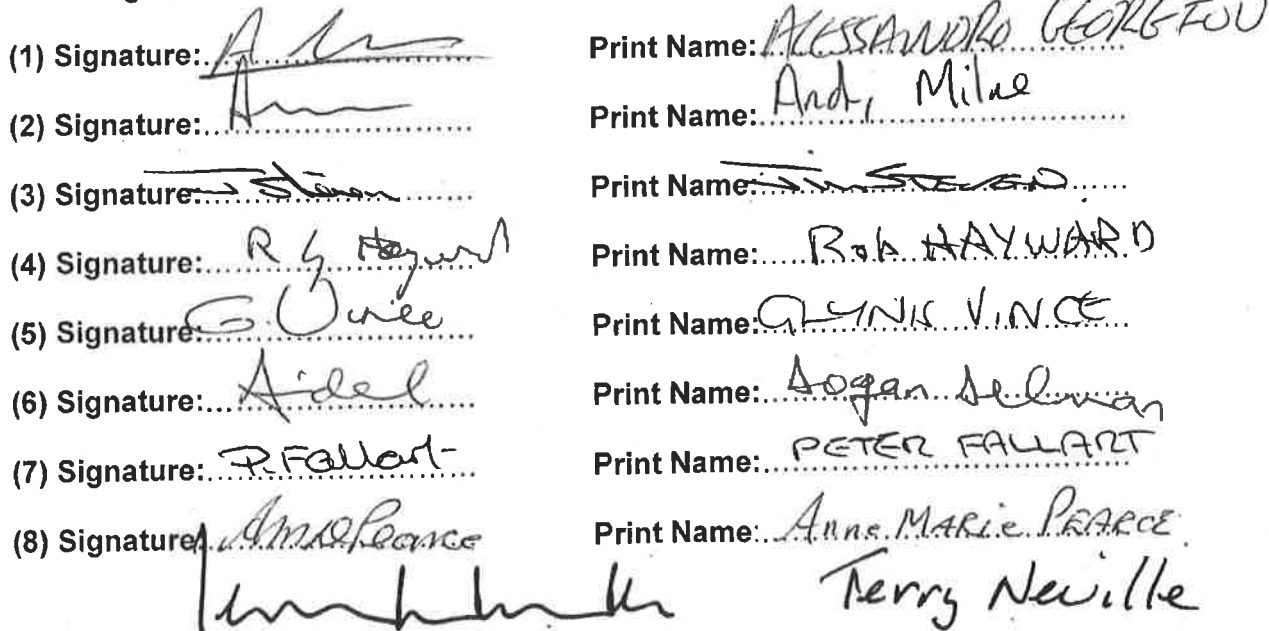 (1) Signature: Print Name: ALESSANDRO GEORGIOU
(2) Signature: Print Name: Andy Milne
(3) Signature J Steven Print Name: Jim STEVEN
(4) Signature: R G Hayward Print Name: Rob HAYWARD
(5) Signature: G. Vince Print Name: GLYNIS VINCE
(6) Signature: Print Name: Dogan Delman
(7) Signature: P. Fallart Print Name: PETER FALLART
(8) Signature AM Pearce Print Name: Anne MARie PEARCE
Terry Neville